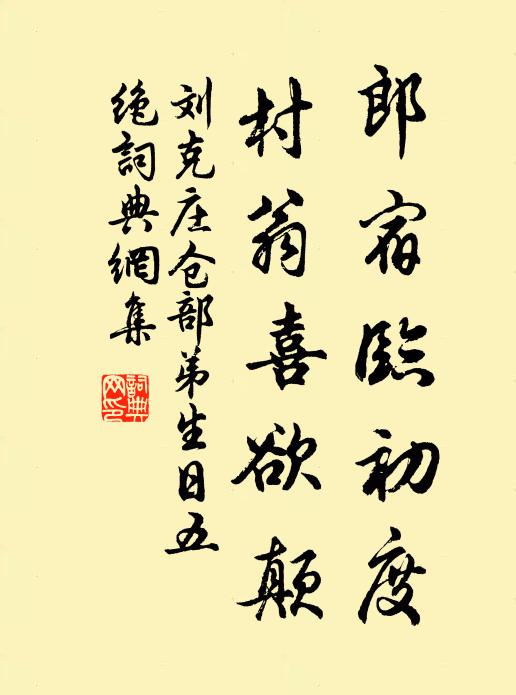 郎宿臨初度
村翁喜欲顛
刘克庄仓部弟生日五
绝詞典網集
詞典
网印